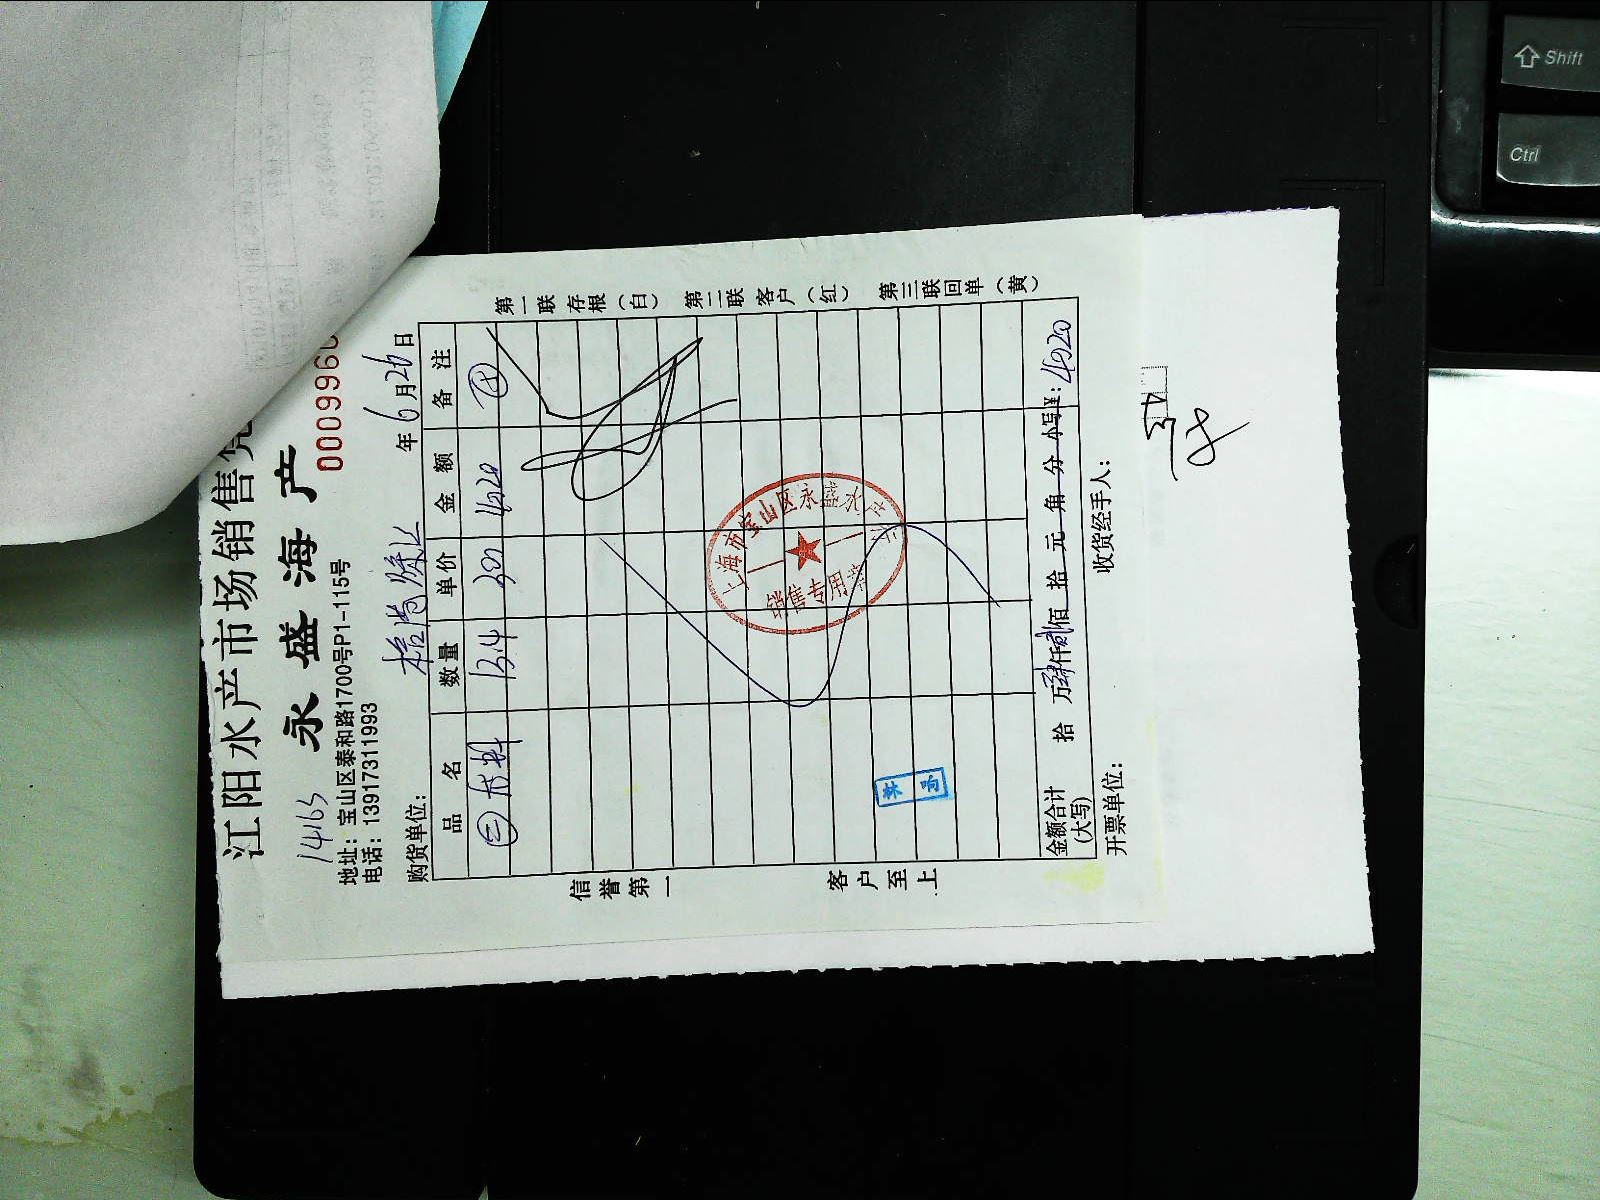 江阳水产市场销售凭
永盛海产
14163
地址：宝山区泰和路1700号P1-115号
电话：13917311993
购货单位：
年6月26日
品名 数量 单价 金额 备注
13.4 300 4020
第一联存根（白） 第二联客户（红） 第三联回单（黄）
信誉第一 客户至上
上海市宝山区永盛水产
销售专用章
林响
金额合计
(大写)
拾 万肆仟贰佰 拾 元 角 分 小写¥：4020
开票单位：
收货经手人：
Shift
Ctrl